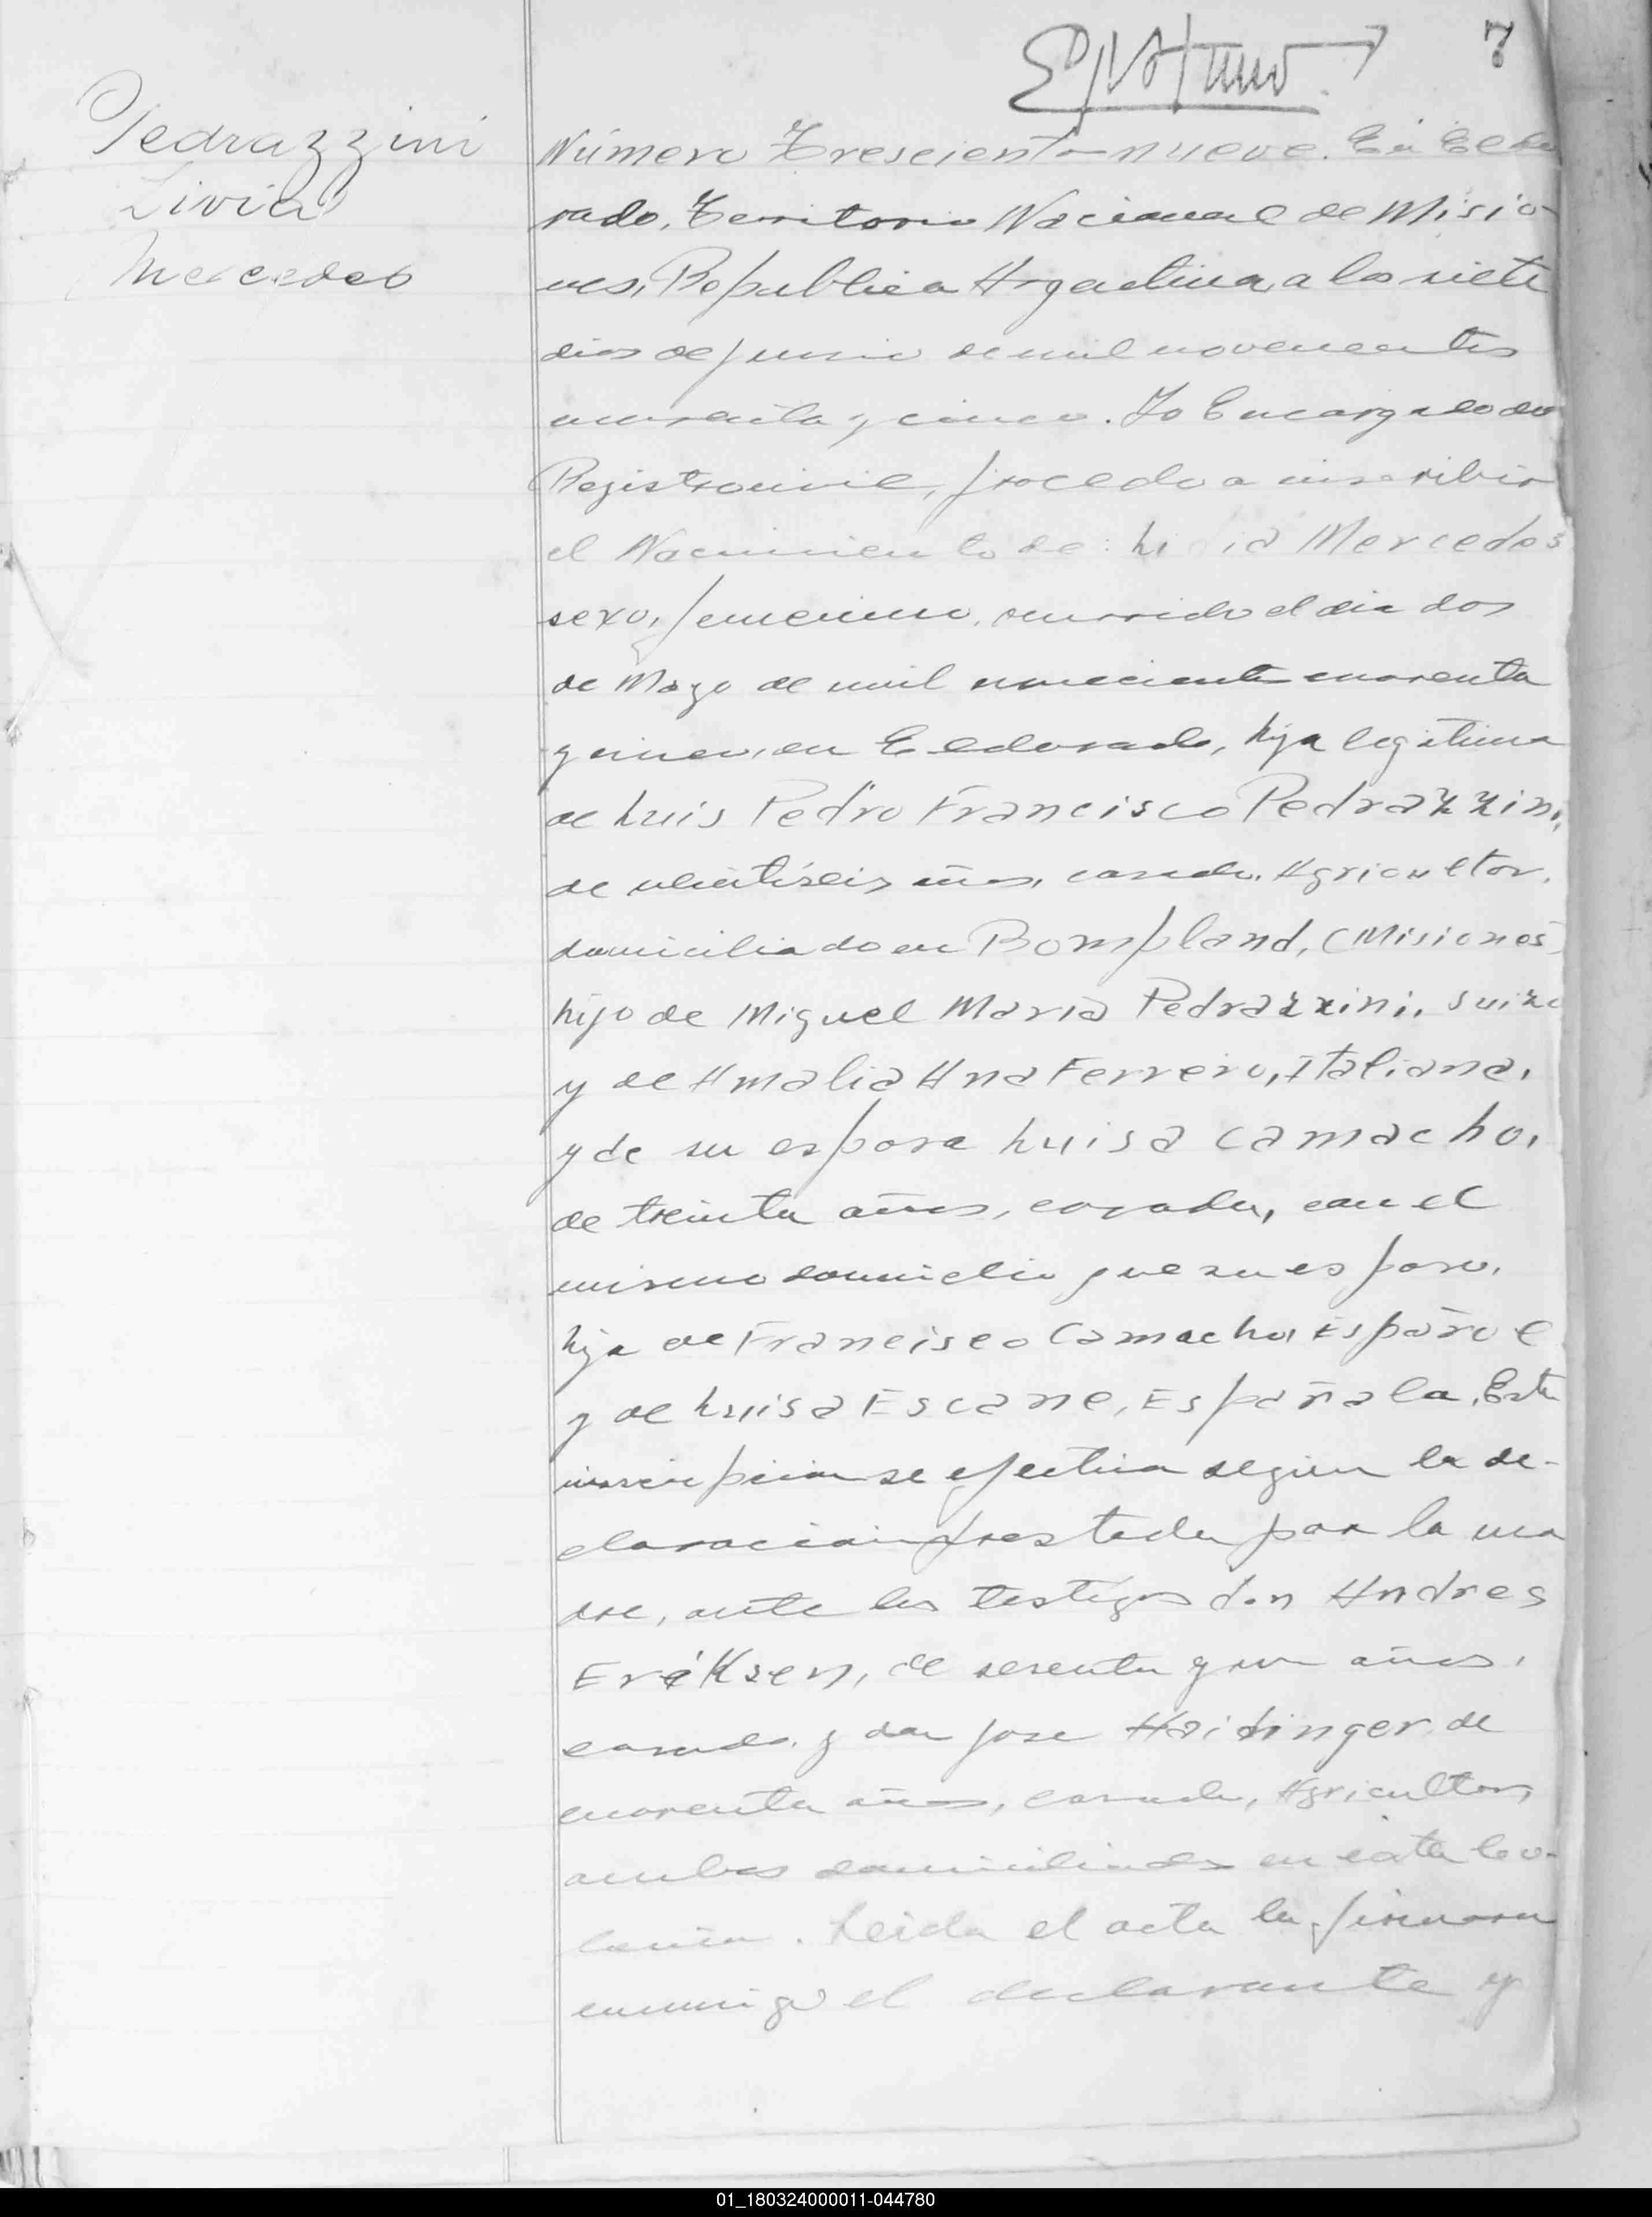 7
Pedrazzini
Livia
Mercedes
Número Trescientos nueve. En Eldo
rado, Territorio Nacional de Misio-
nes, Republica Argentina, a los siete
dias de junio de mil novecientos
cuarenta y cinco. Yo Encargado del
Registro civil, procedo a inscribir
el Nacimiento de: Livia Mercedes
sexo, femenino, ocurrido el dia dos
de Mayo de mil novecientos cuarenta
y cinco, en Eldorado, hija legitima
de Luis Pedro Francisco Pedrazzini,
de veintiseis años, casado, Agricultor,
domiciliado en Bompland, (Misiones)
hijo de Miguel Maria Pedrazzini, suizo
y de Amalia Ana Ferrero, italiana,
y de su esposa Luisa Camacho,
de treinta años, casada, con el
mismo domicilio que su esposo,
hija de Francisco Camacho, Español
y de Luisa Escane, Española. Esta
inscripcion se efectua segun la de-
claracion prestada por la ma
dre, ante los testigos don Andres
Eriksen, de sesenta y un años,
casado, y don Jose Haidinger, de
cuarenta años, casado, Agricultor,
ambos domiciliados en esta Co-
lonia. Leida el acta la firmaron
conmigo el declarante y
01_180324000011-044780